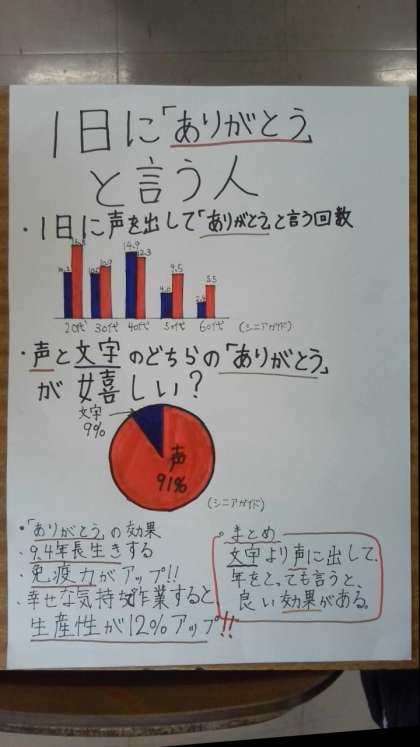 1日に「ありがとう」
と言う人
・1日に声を出して「ありがとう」と言う回数
14.9
12.3
10.9
9.5
5.5
20代 30代 40代 50代 60代 (シニアガイド)
・声と文字のどちらの「ありがとう」
が嬉しい?
文字
9%
声
91%
(シニアガイド)
・「ありがとう」の効果
・9.4年長生きする
・免疫力がアップ!!
・幸せな気持ちで作業すると
生産性が12%アップ!!
。まとめ
文字より声に出して、
年をとっても言うと、
良い効果がある。